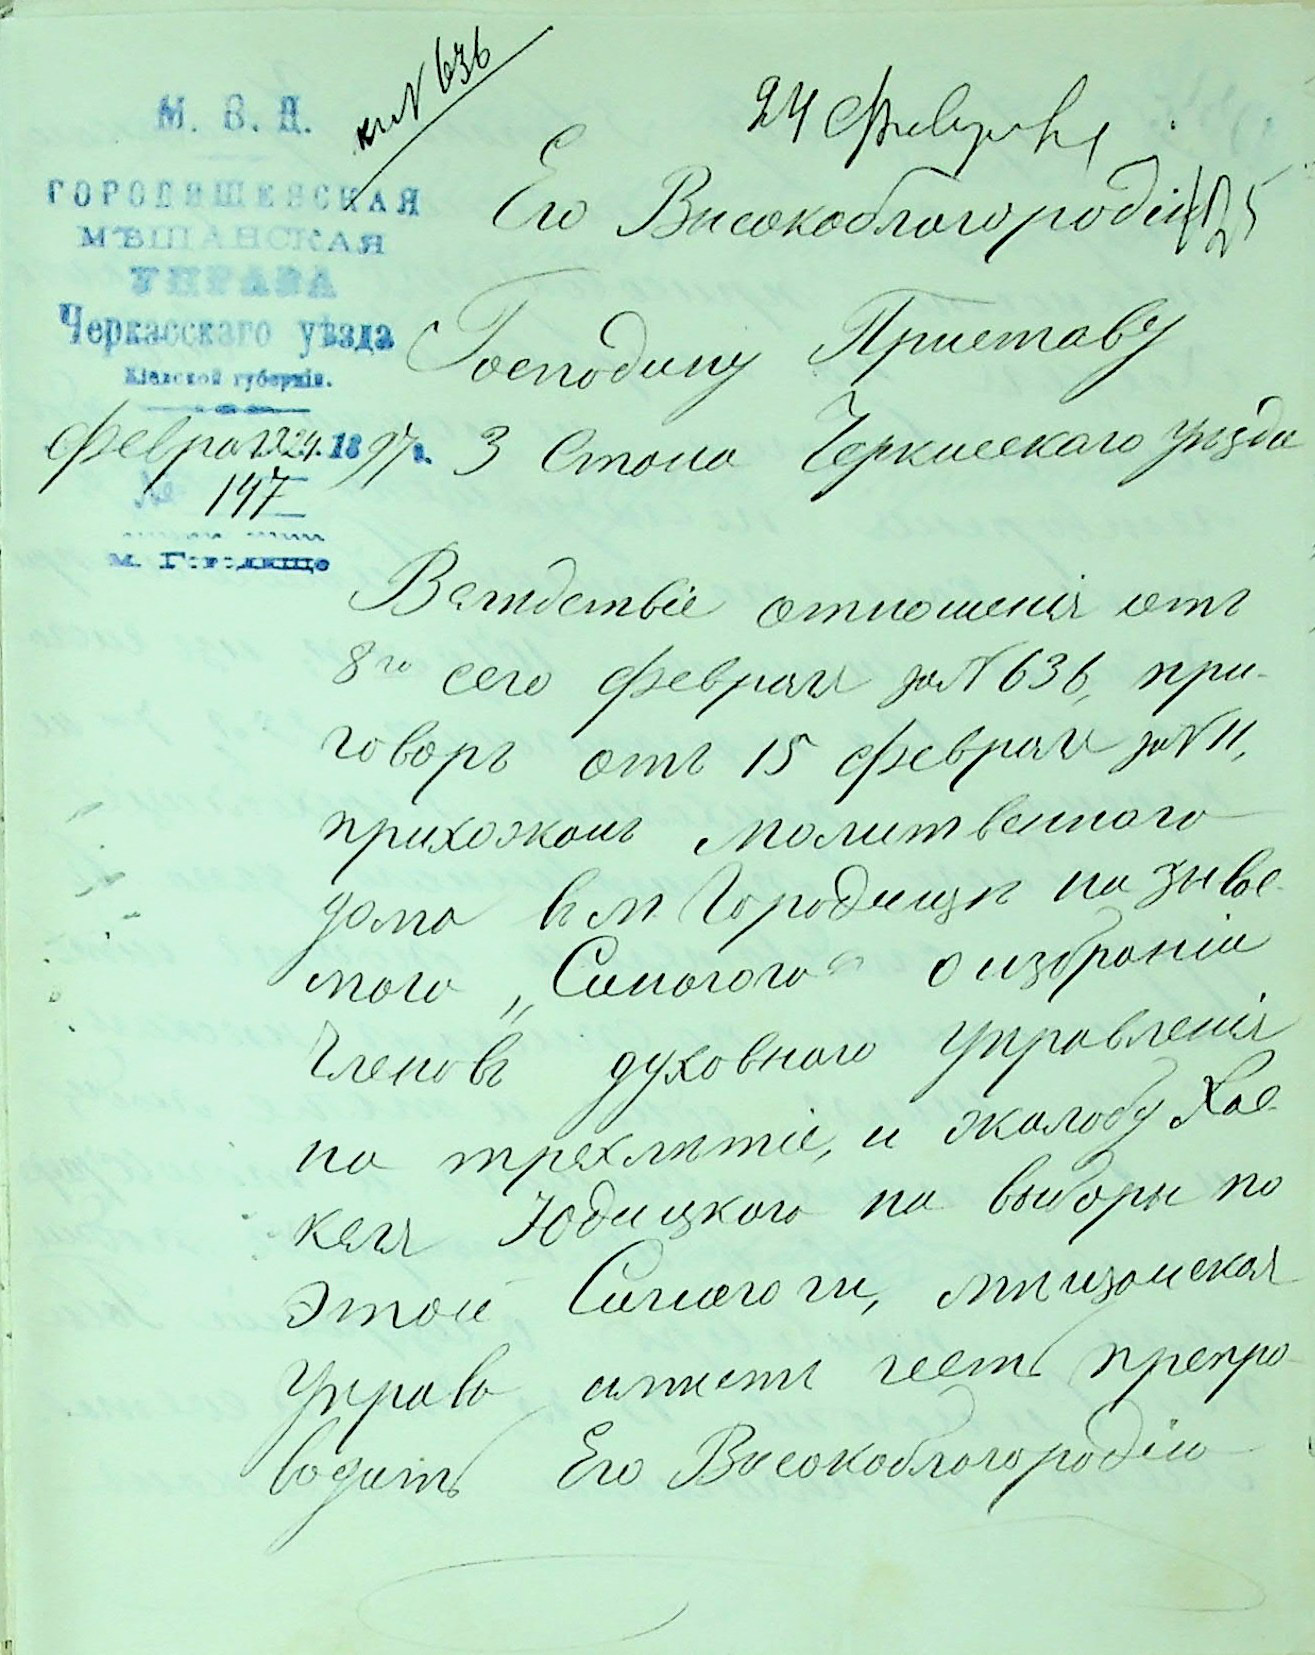 к № 636
24 февраля
М. В. Д.
ГОРОДИЩЕНСКАЯ
МѢЩАНСКАЯ
УПРАВА
Черкасскаго уѣзда
Кіевской губерніи.
Февраля 24 д. 1897 г.
№ 147
м. Городище
Его Высокоблагородію
Господину Приставу
3 Стана Черкасскаго уѣзда
Вслѣдствіе отношенія отъ
8го сего февраля за № 636, при-
говоръ отъ 15 февраля за № 11,
прихожанъ молитвенного
дома в м. Городищѣ называе-
мого „Синагога“ о избраніи
Членовъ духовнаго управленія
на трехлѣтіе, и жалобу Хас-
келя Юдицкаго на выборы по
этой Синагоги, мѣщанская
Управа имѣетъ честь препро
водить Его Высокоблагородію